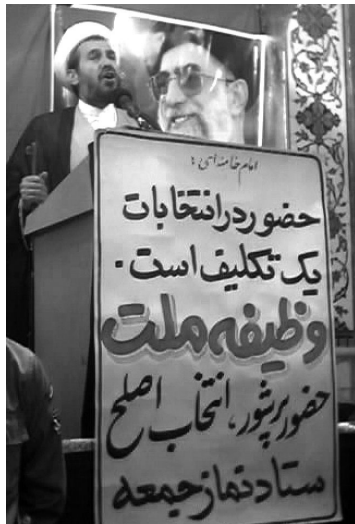 امام خامنه ای:
حضور در انتخابات
یک تکلیف است.
وظیفه ملت
حضور پرشور، انتخاب اصلح
ستاد نماز جمعه